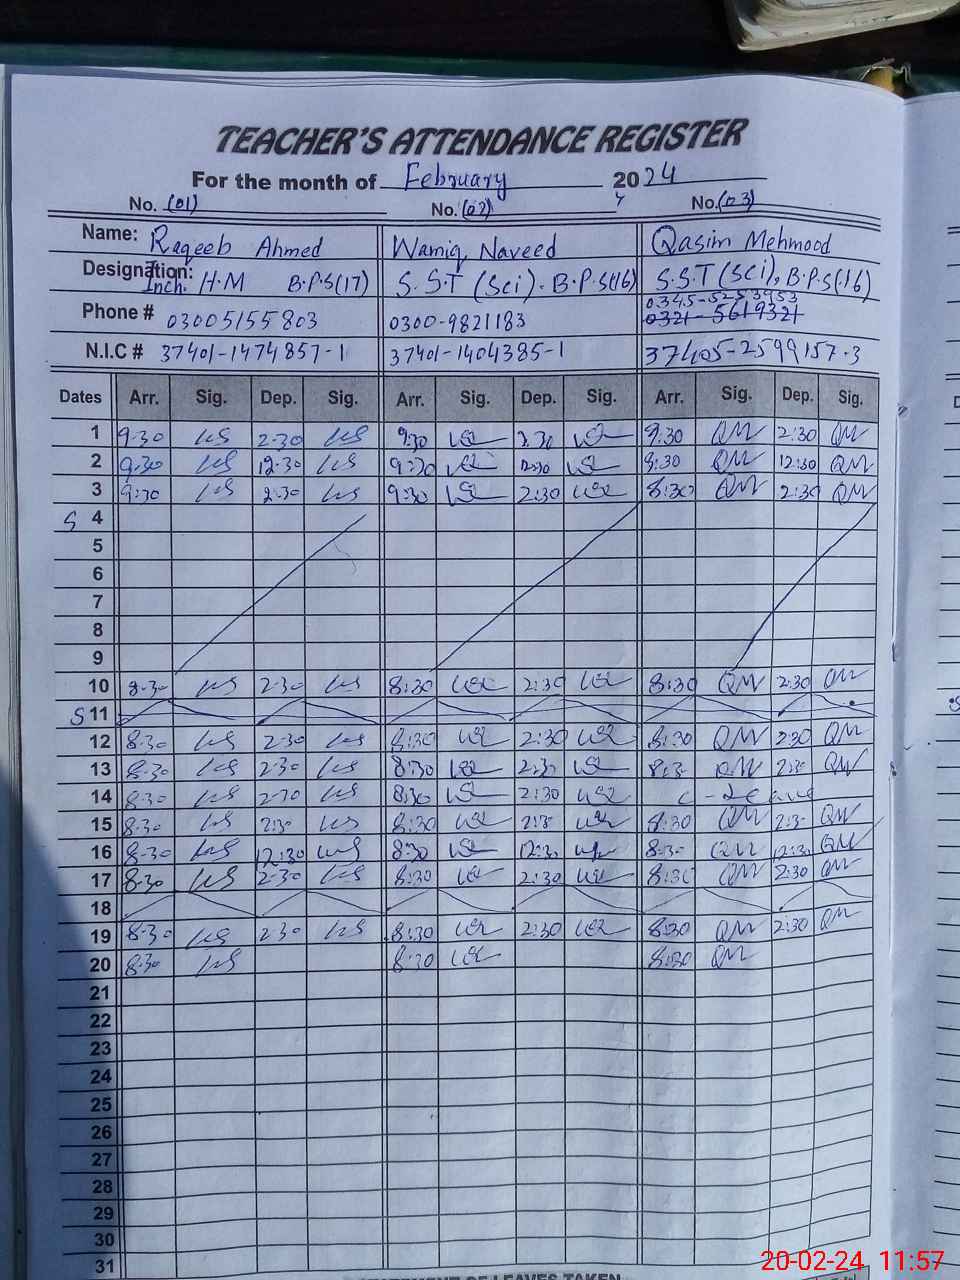 TEACHER'S ATTENDANCE REGISTER
For the month of February 2024
No. (01) No. (02) No. (03)
Name: Raqeeb Ahmed Wamiq Naveed Qasim Mehmood
Designation: Inch. H.M B.P.S(17) S.S.T (Sci). B.P.S(16) S.S.T (Sci), B.P.S(16)
0345-5253953
Phone # 03005155803 0300-9821183 0321-5619321
N.I.C # 37401-1474857-1 37401-1404385-1 37405-2599157-3
Dates Arr. Sig. Dep. Sig. Arr. Sig. Dep. Sig. Arr. Sig. Dep. Sig.
1 9-30 2-30 9:30 2:30 9:30 QM 2:30 QM
2 9-30 12-30 9:30 12:30 9:30 QM 12:30 QM
3 9:30 2:30 9:30 2:30 8:30 QM 2:30 QM
S 4
5
6
7
8
9
10 8-30 2-30 8:30 2:30 8:30 QM 2:30 QM
S 11
12 8-30 2-30 8:30 2:30 8:30 QM 2:30 QM
13 8-30 2-30 8:30 2:30 8:3- QM 2:30 QM
14 8-30 2-30 8:30 2:30 C - Leave
15 8-30 2:30 8:30 2:30 8:30 QM 2:30 QM
16 8-30 12:30 8:30 12:30 8:30 QM 12:30 QM
17 8-30 2-30 8:30 2:30 8:30 QM 2:30 QM
18
19 8-30 2-30 8:30 2:30 8:30 QM 2:30 QM
20 8-30 8:30 8:30 QM
21
22
23
24
25
26
27
28
29
30
31
STATEMENT OF LEAVES TAKEN
20-02-24 11:57